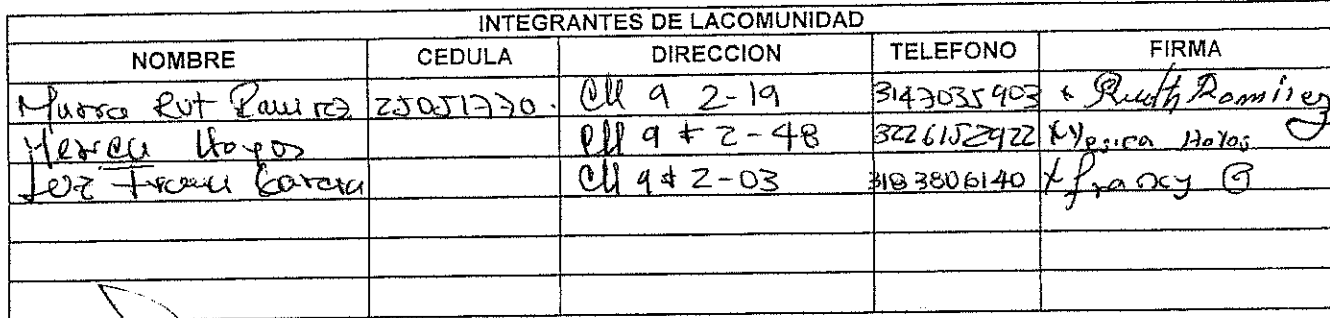 INTEGRANTES DE LACOMUNIDAD
NOMBRE CEDULA DIRECCION TELEFONO FIRMA
Rut Ramirez 25051770. Cll 9 2-19 3147035903 x Ruth Ramirez
Hoyos Cll 9 # 2-48 3226152922 x Yesica Hoyos
Luz Garcia Cll 9 # 2-03 3183806140 x francy G